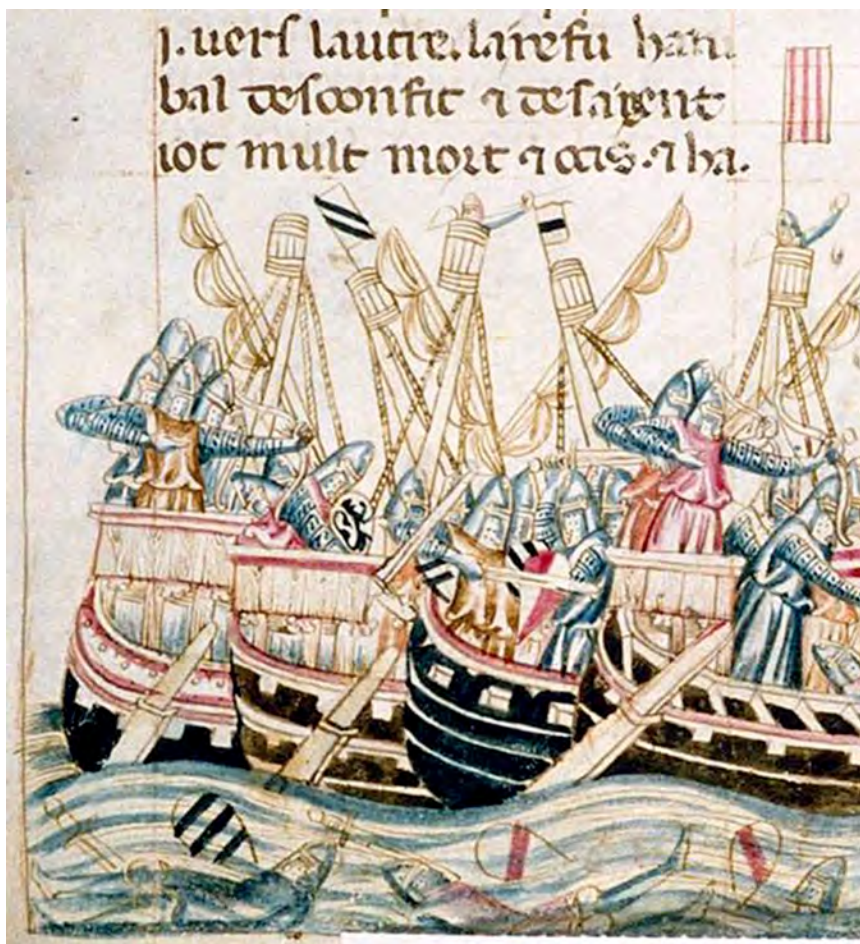 j. uers lautre. la refu hani
bal desconfit ⁊ desa gent
iot mult mort ⁊ ocis. ⁊ ha.